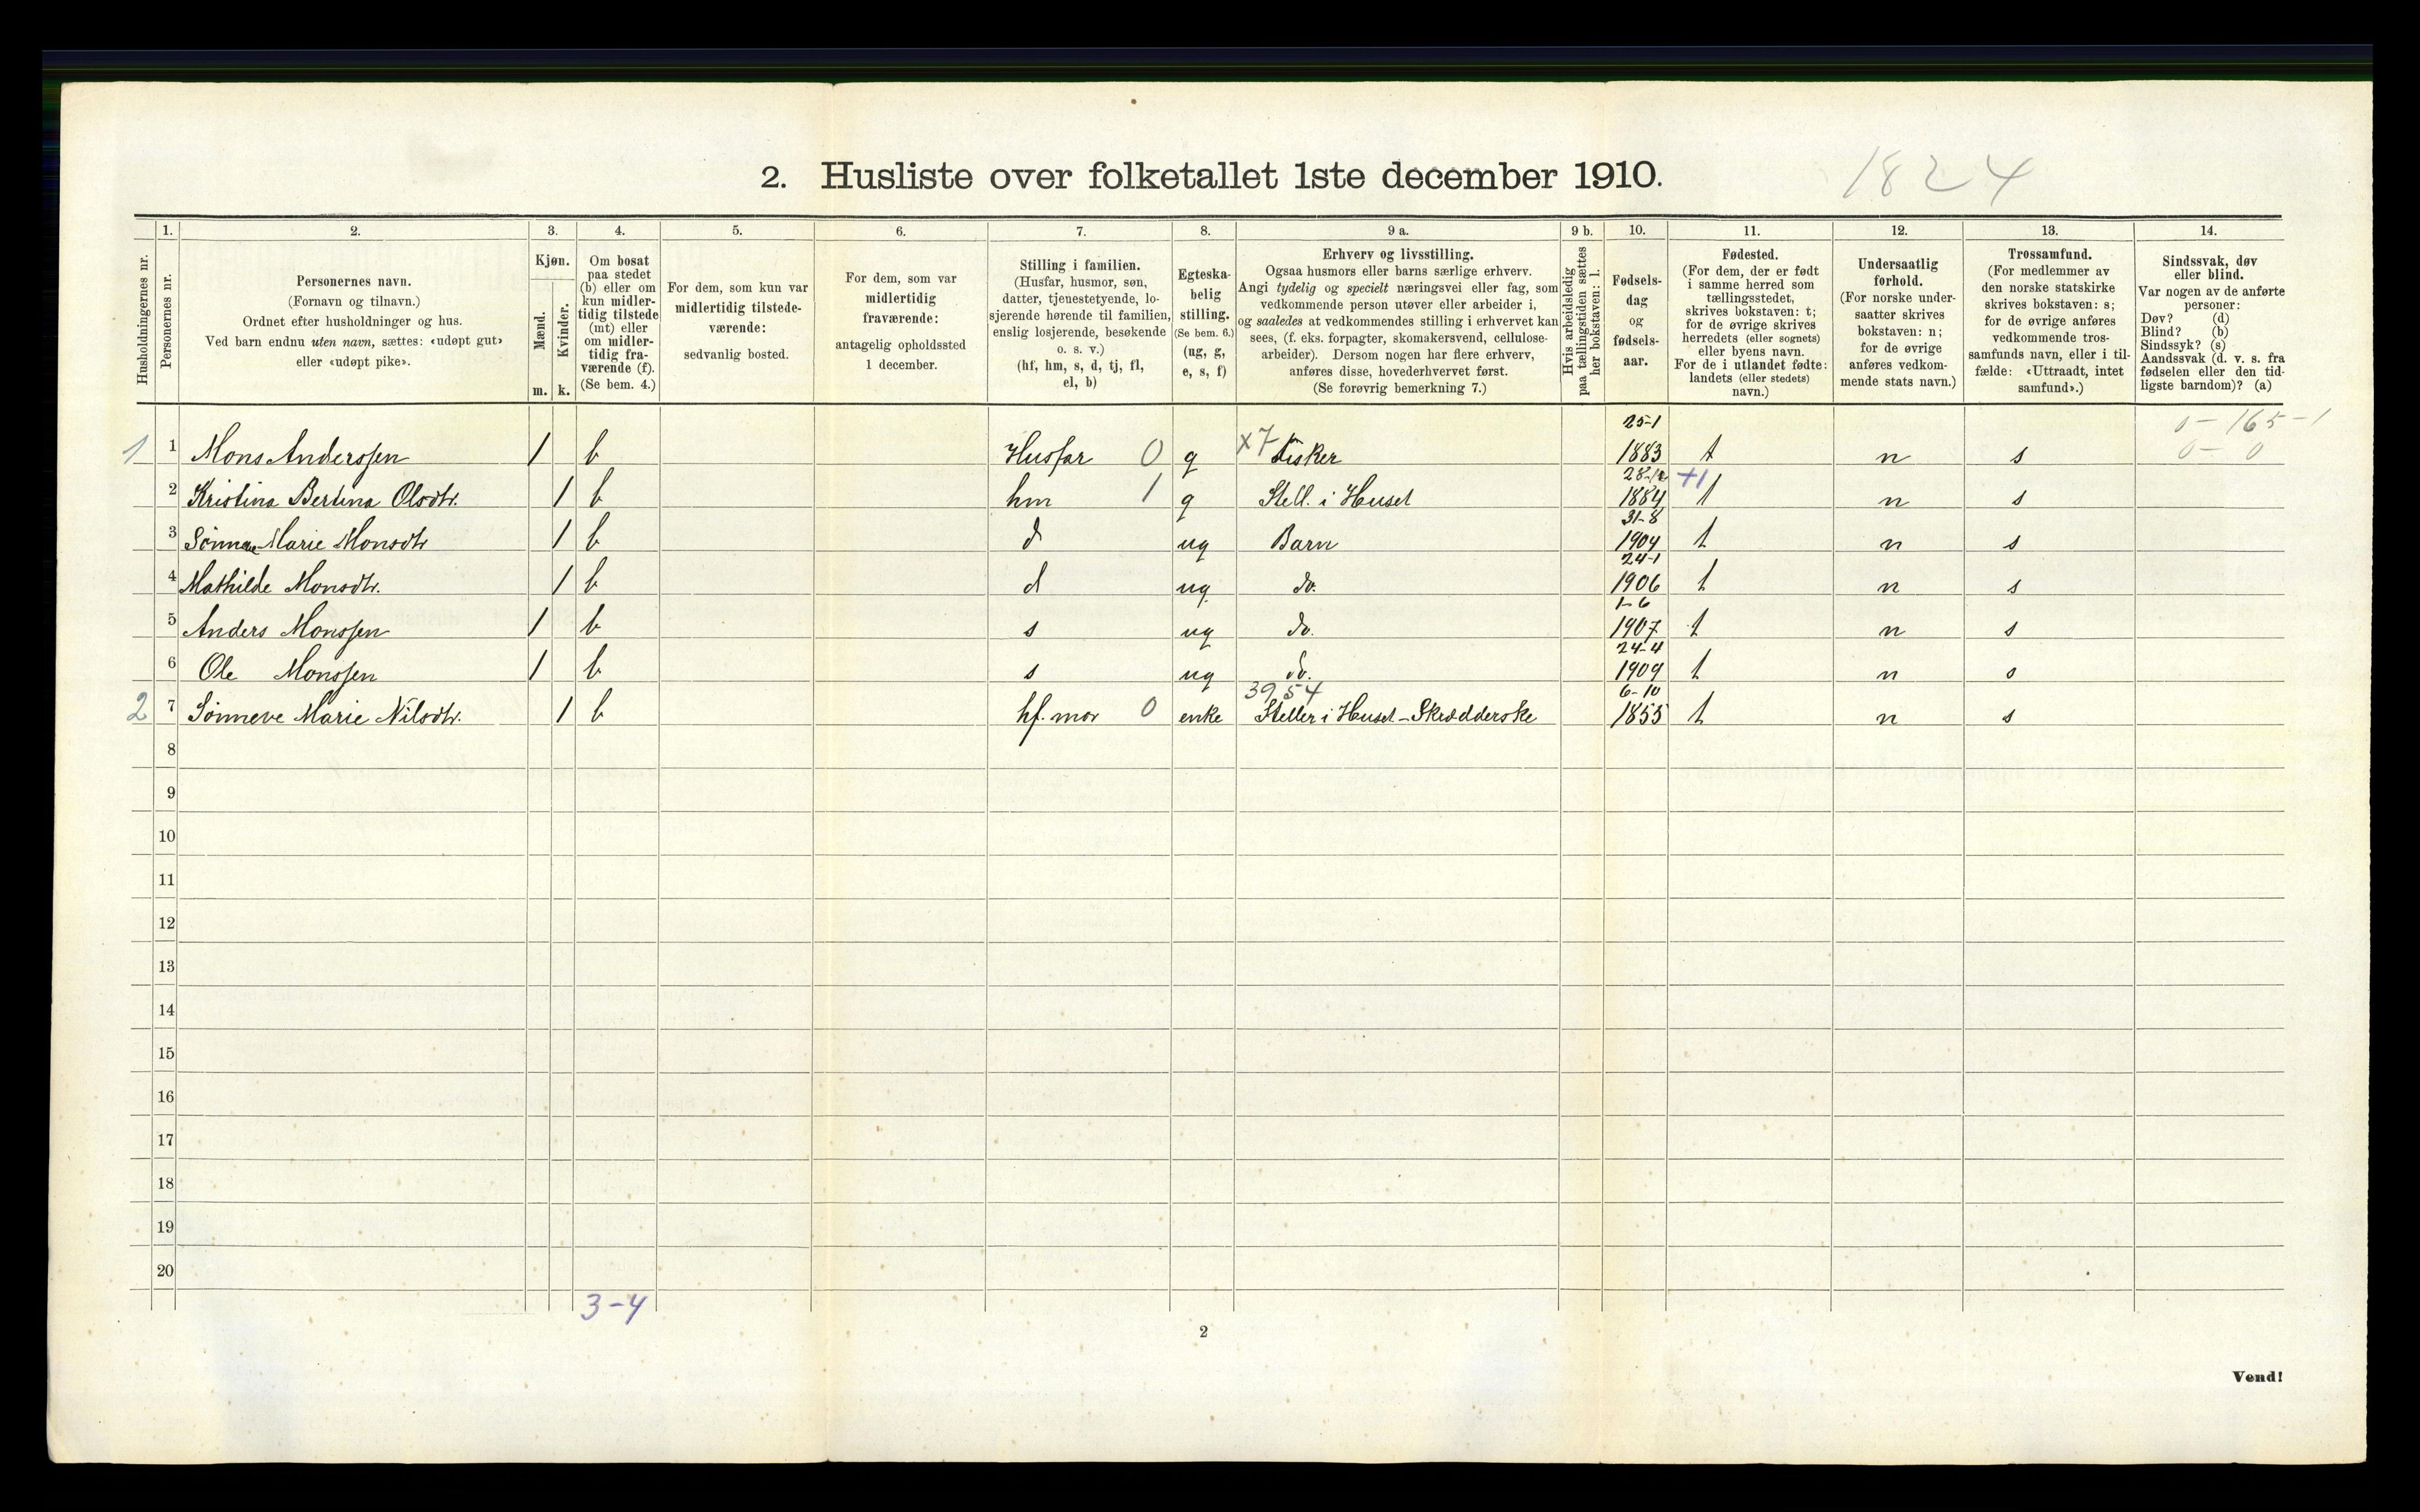 2. Husliste over folketallet 1ste december 1910.
1824
1. 2. 3. 4. 5. 6. 7. 8. 9 a. 9 b. 10. 11. 12. 13. 14.
Husholdningernes nr.
Personernes nr.
Personernes navn.
(Fornavn og tilnavn.)
Ordnet efter husholdninger og hus.
Ved barn endnu uten navn, sættes: «udøpt gut»
eller «udøpt pike».
Kjøn.
Mænd.
Kvinder.
m. k.
Om bosat
paa stedet
(b) eller om
kun midler-
tidig tilstede
(mt) eller
om midler-
tidig fra-
værende (f).
(Se bem. 4.)
For dem, som kun var
midlertidig tilstede-
værende:
sedvanlig bosted.
For dem, som var
midlertidig
fraværende:
antagelig opholdssted
1 december.
Stilling i familien.
(Husfar, husmor, søn,
datter, tjenestetyende, lo-
sjerende hørende til familien,
enslig losjerende, besøkende
o. s. v.)
(hf, hm, s, d, tj, fl,
el, b)
Egteska-
belig
stilling.
(Se bem. 6.)
(ug, g,
e, s, f)
Erhverv og livsstilling.
Ogsaa husmors eller barns særlige erhverv.
Angi tydelig og specielt næringsvei eller fag, som
vedkommende person utøver eller arbeider i,
og saaledes at vedkommendes stilling i erhvervet kan
sees, (f. eks. forpagter, skomakersvend, cellulose-
arbeider). Dersom nogen har flere erhverv,
anføres disse, hovederhvervet først.
(Se forøvrig bemerkning 7.)
Hvis arbeidsledig
paa tællingstiden sættes
her bokstaven: l.
Fødsels-
dag
og
fødsels-
aar.
Fødested.
(For dem, der er født
i samme herred som
tællingsstedet,
skrives bokstaven: t;
for de øvrige skrives
herredets (eller sognets)
eller byens navn.
For de i utlandet fødte:
landets (eller stedets)
navn.)
Undersaatlig
forhold.
(For norske under-
saatter skrives
bokstaven: n;
for de øvrige
anføres vedkom-
mende stats navn.)
Trossamfund.
(For medlemmer av
den norske statskirke
skrives bokstaven: s;
for de øvrige anføres
vedkommende tros-
samfunds navn, eller i til-
fælde: «Uttraadt, intet
samfund».)
Sindssvak, døv
eller blind.
Var nogen av de anførte
personer:
Døv? (d)
Blind? (b)
Sindssyk? (s)
Aandssvak (d. v. s. fra
fødselen eller den tid-
ligste barndom)? (a)
25-1 0-165-1
1 1 Mons Anderssen 1 b Husfar 0 g x7 Fisker 1883 t n s 0-0
28-12 +1
2 Kristina Bertina Olsdtr. 1 b hm 1 g Stell. i Huset 1884 t n s
31-8
3 Sønneve Marie Monsdtr 1 b d ug Barn 1904 t n s
24-1
4 Mathilde Monsdtr. 1 b d ug do. 1906 t n s
1-6
5 Anders Monssen 1 b s ug do. 1907 t n s
24-4
6 Ole Monssen 1 b s ug do. 1909 t n s
3954 6-10
2 7 Sønneve Marie Nilsdtr. 1 b hf. mor 0 enke Steller i Huset - Skrædderske 1855 t n s
8
9
10
11
12
13
14
15
16
17
18
19
20
3-4
2
Vend!